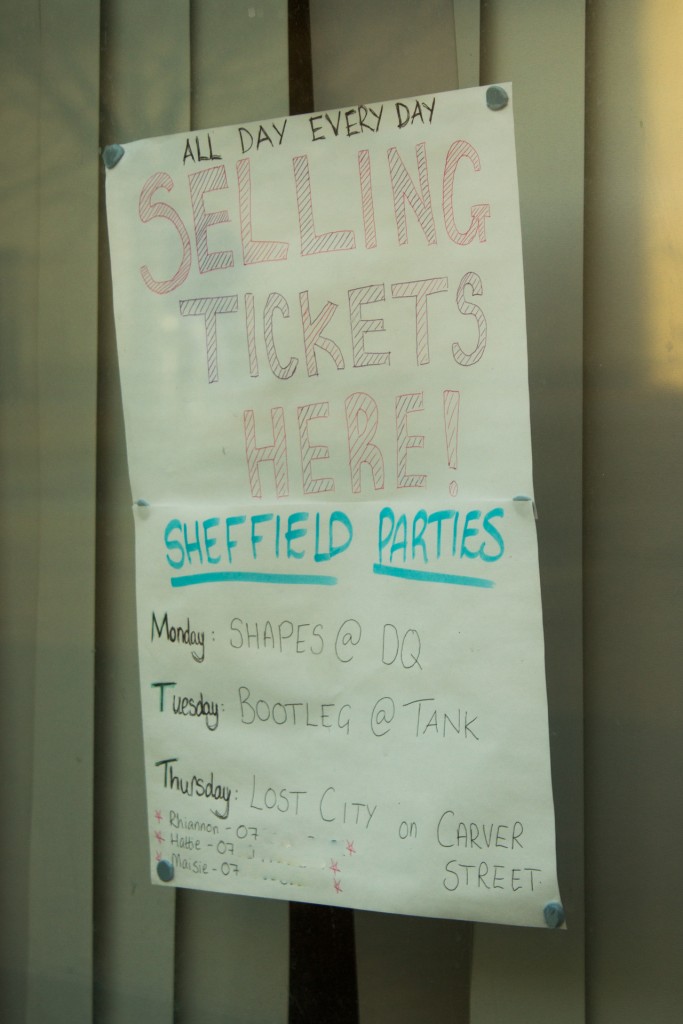 ALL DAY EVERY DAY
SELLING
TICKETS
HERE!
SHEFFIELD PARTIES
Monday: SHAPES @ DQ
Tuesday: BOOTLEG @ TANK
Thursday: LOST CITY on CARVER STREET
Rhiannon - 07
Hattie - 07
Maisie - 07